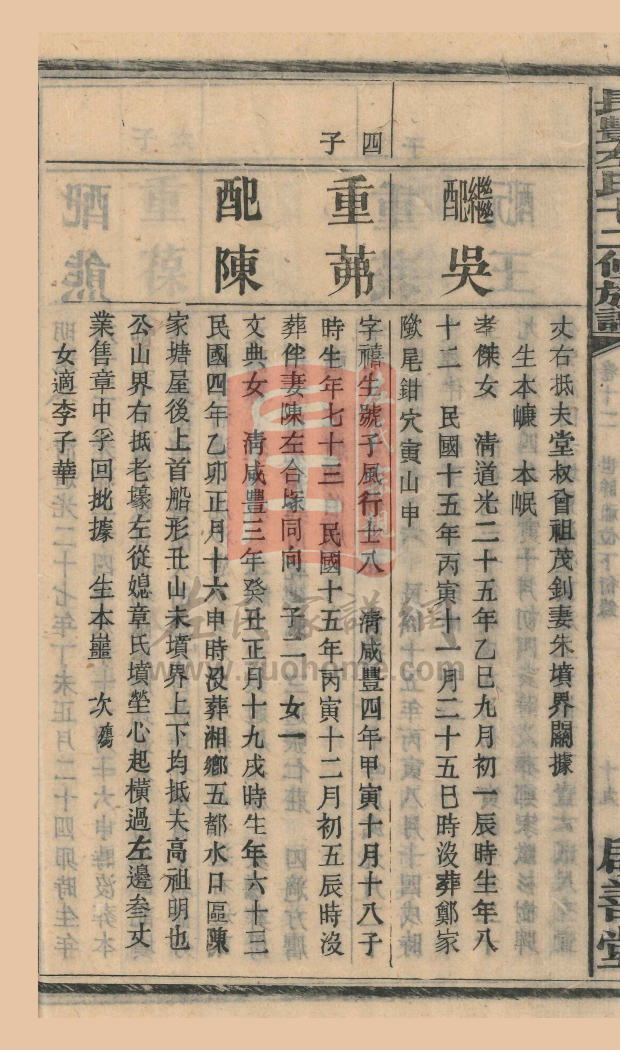 丈右抵夫堂叔曾祖茂釗妻朱墳界關據
生本㠠 本岷
繼配吳
孝傑女 清道光二十五年乙巳九月初一辰時生年八
十二 民國十五年丙寅十一月二十五巳時沒葬鄭家
尾鉗穴寅山申
四子
重茀
字禧生號子風行十八 清咸豐四年甲寅十月十八子
時生年七十三 民國十五年丙寅十二月初五辰時沒
葬伴妻陳左合塚同向 子二 女一
配陳
文典女 清咸豐三年癸丑正月十九戌時生年六十三
民國四年乙卯正月十六申時沒葬湘鄉五都水口區陳
家塘屋後上首船形丑山未墳界上下均抵夫高祖明也
公山界右抵老壕左從媳章氏墳塋心起橫過左邊叁丈
業售章中孚回批據 生本 次殤
女適李子華
左氏家譜網
www.zuohome.com